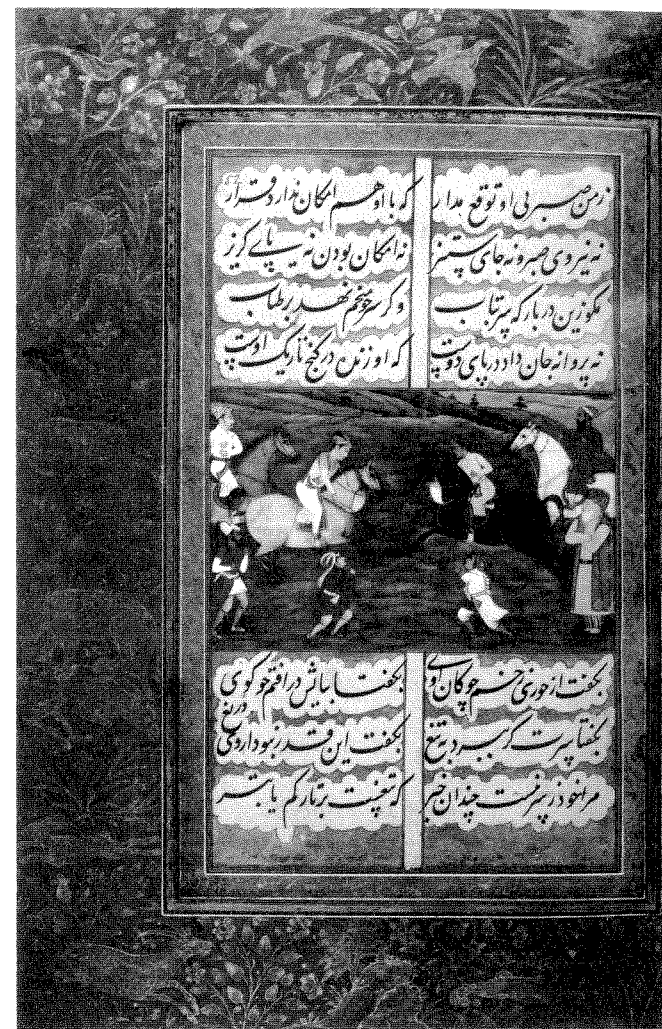 ز من صبر بی او توقع مدار که با او هم امکان ندارد قرار
نه نیروی صبر و نه جای ستیز نه امکان بودن نه پای کریز
مکو زین در بارکه سر بتاب وکر سر چو میخم نهد بر طناب
نه پروانه جان داد در پای دوست که او زنده در کنج تاریک اوست
بکفت ار خوری زخم چوکان وی بکفتا بپایش در افتم چو کوی
بکفتا سرت کر ببرد به تیغ بکفت این قدر نبود از وی دریغ
مرا خود ز سر نیست چندان خبر که تیغست بر تارکم یا تبر